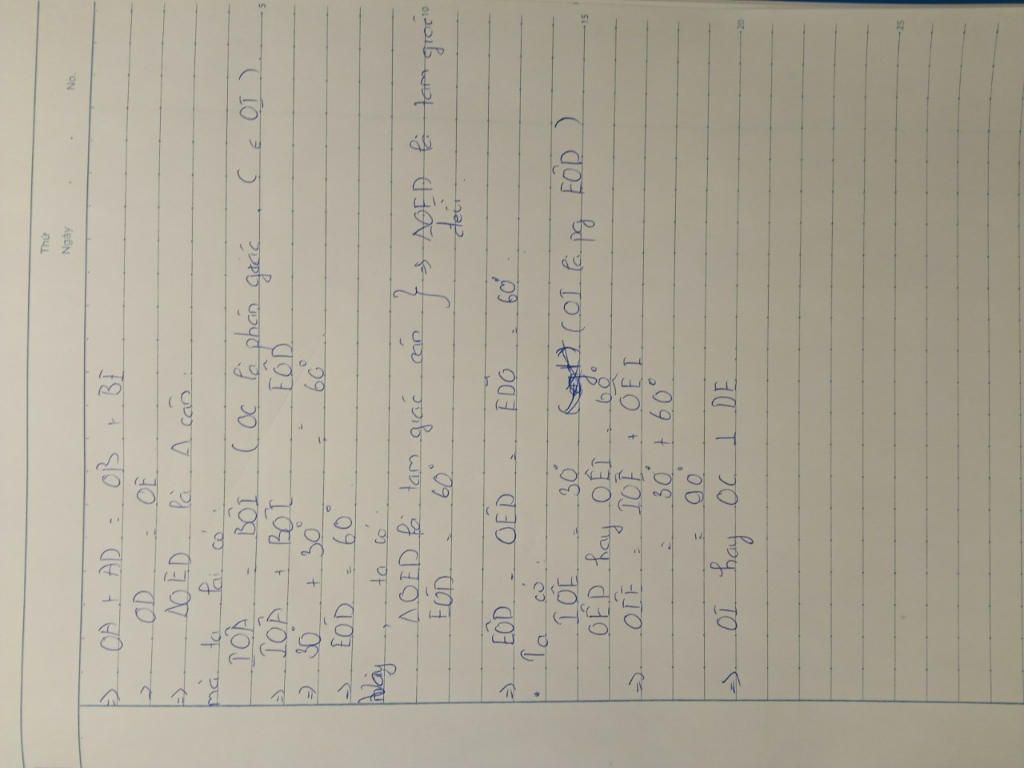 Thứ
Ngày . . No.
=> OA + AD = OB + BI
=> OD = OE
=> ΔOED là Δ cân
mà ta lại có:
IÔA = BÔI (OC là phân giác. C ∈ OI)
=> IÔA + BÔI = EÔD
=> 30° + 30° = 60°
=> EÔD = 60°
Vậy, ta có:
ΔOED là tam giác cân } => ΔOED là tam giác
EÔD = 60° đều
=> EÔD = OÊD = EDO = 60°.
• Ta có:
IOE = 30° (OI là pg EÔD)
OÊD hay OÊI = 60°
=> OIE = IOE + OEI
= 30° + 60°
= 90°
=> OI hay OC ⊥ DE
5
10
15
20
25